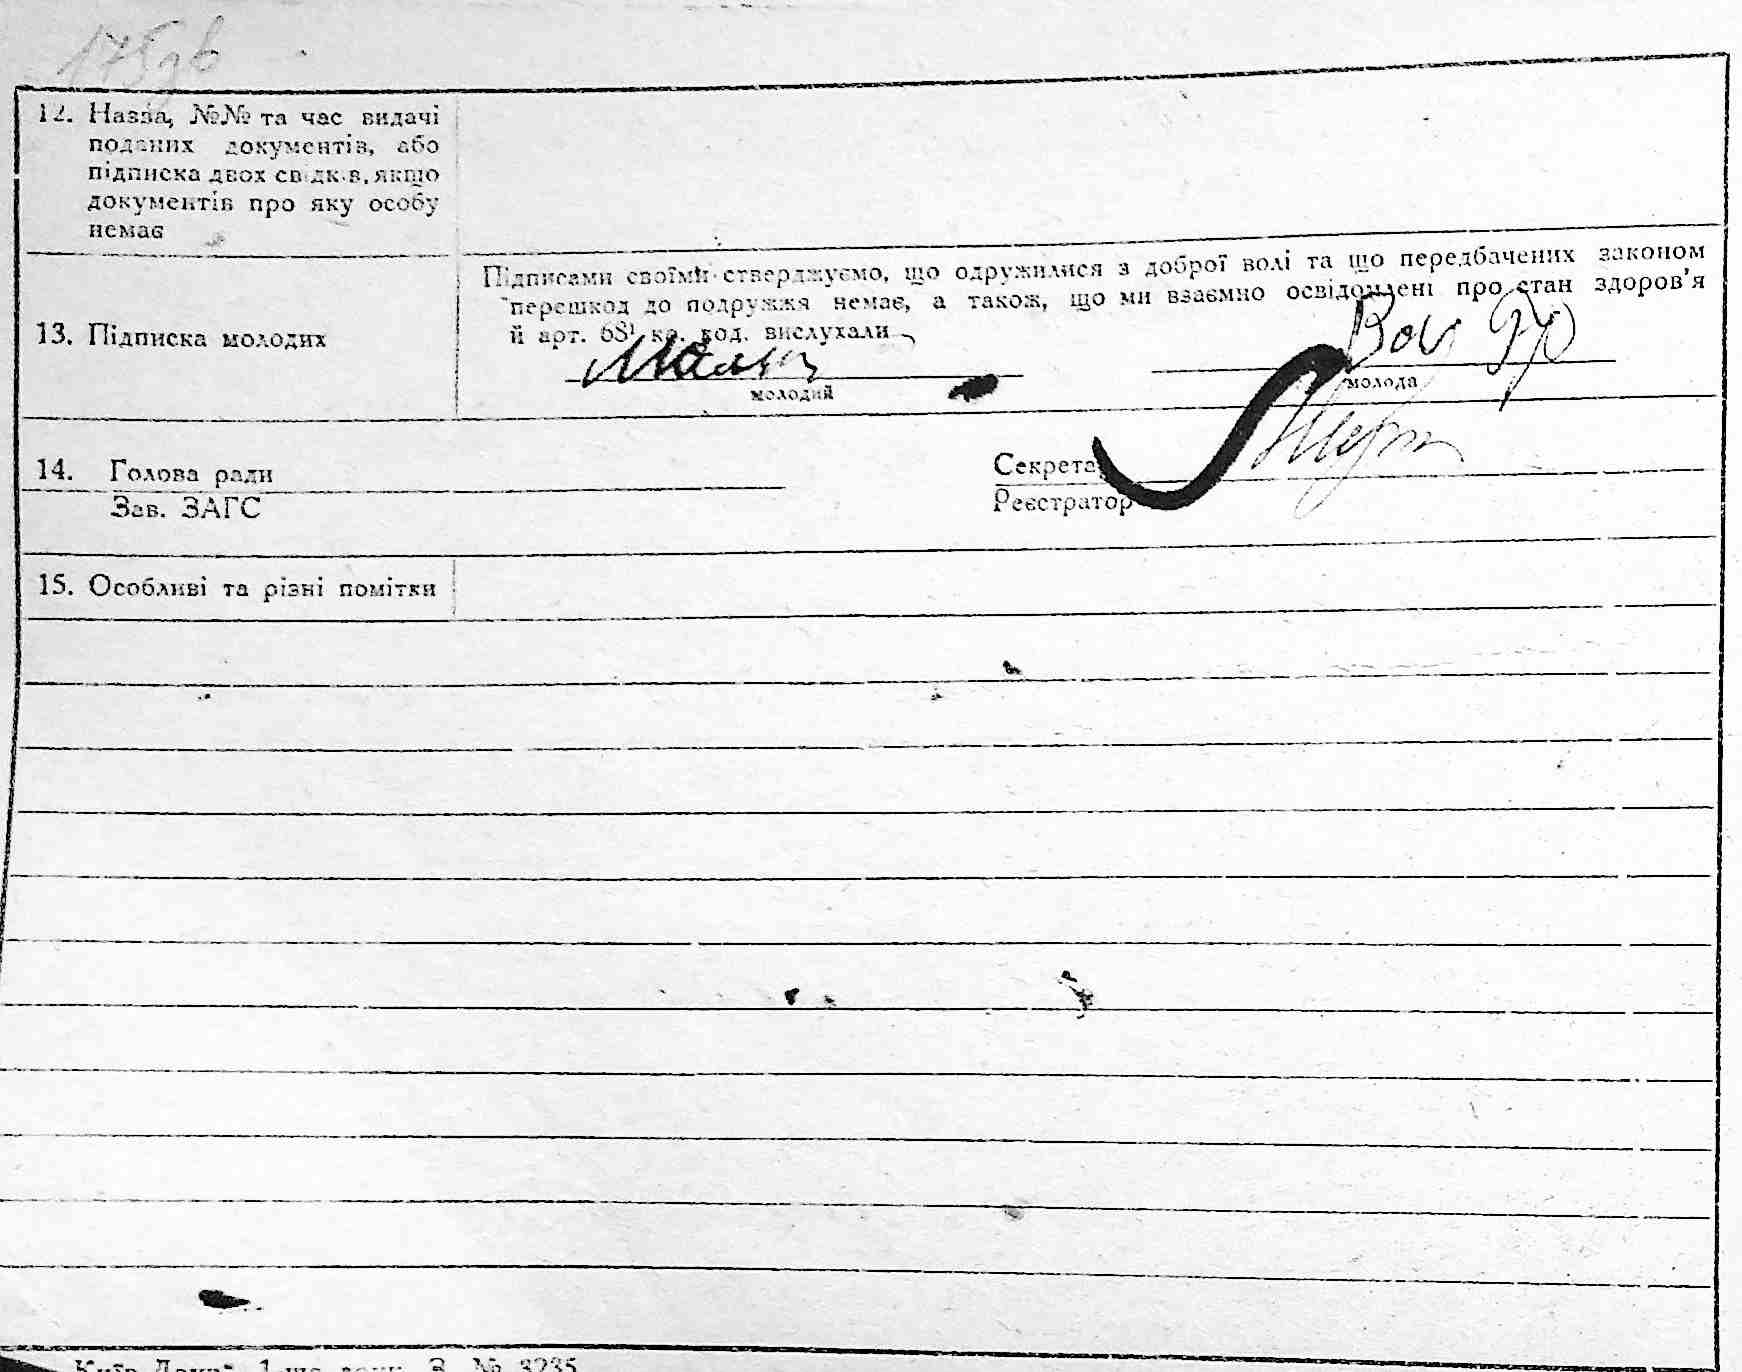 12. Назва, №№ та час видачі
поданих документів, або
підписка двох свідків, якщо
документів про яку особу
немає
13. Підписка молодих
Підписами своїми стверджуємо, що одружилися з доброї волі та що передбачених законом
перешкод до подружжя немає, а також, що ми взаємно освідомлені про стан здоров'я
й арт. 68¹ кр. код. вислухали
молодий
молода
14. Голова ради
Зав. ЗАГС
Секретар
Реєстратор
15. Особливі та різні помітки
З. № 3235